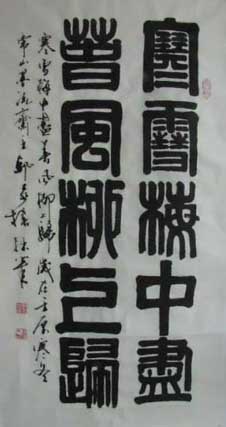 寒雪梅中盡
春風柳上歸
寒雪梅中盡春风柳上歸歲在壬辰寒冬
常山
齋主